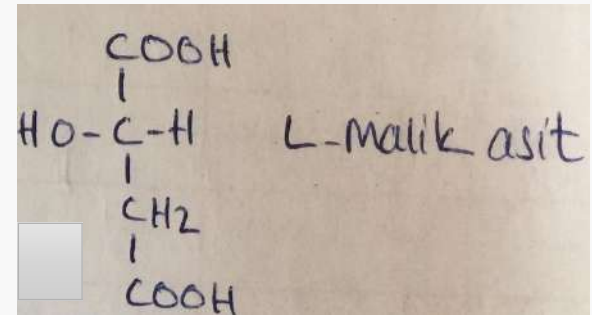 COOH
HO-C-H L-Malik asit
CH2
COOH